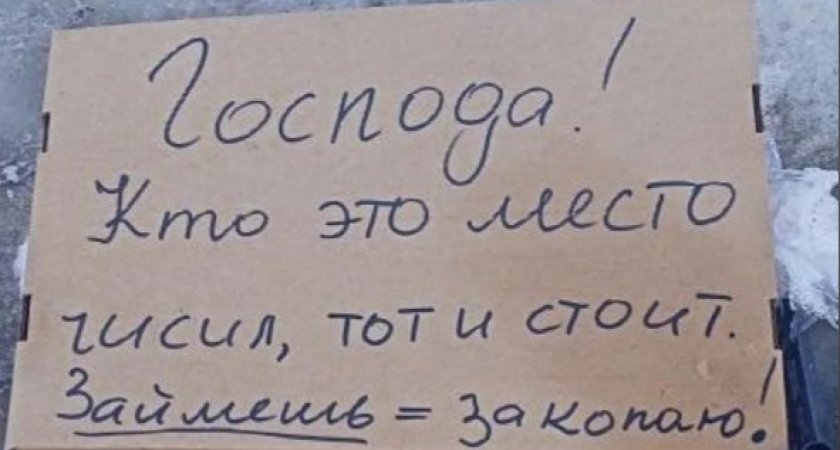 Господа!
Кто это место
чисил, тот и стоит.
Займешь = закопаю!